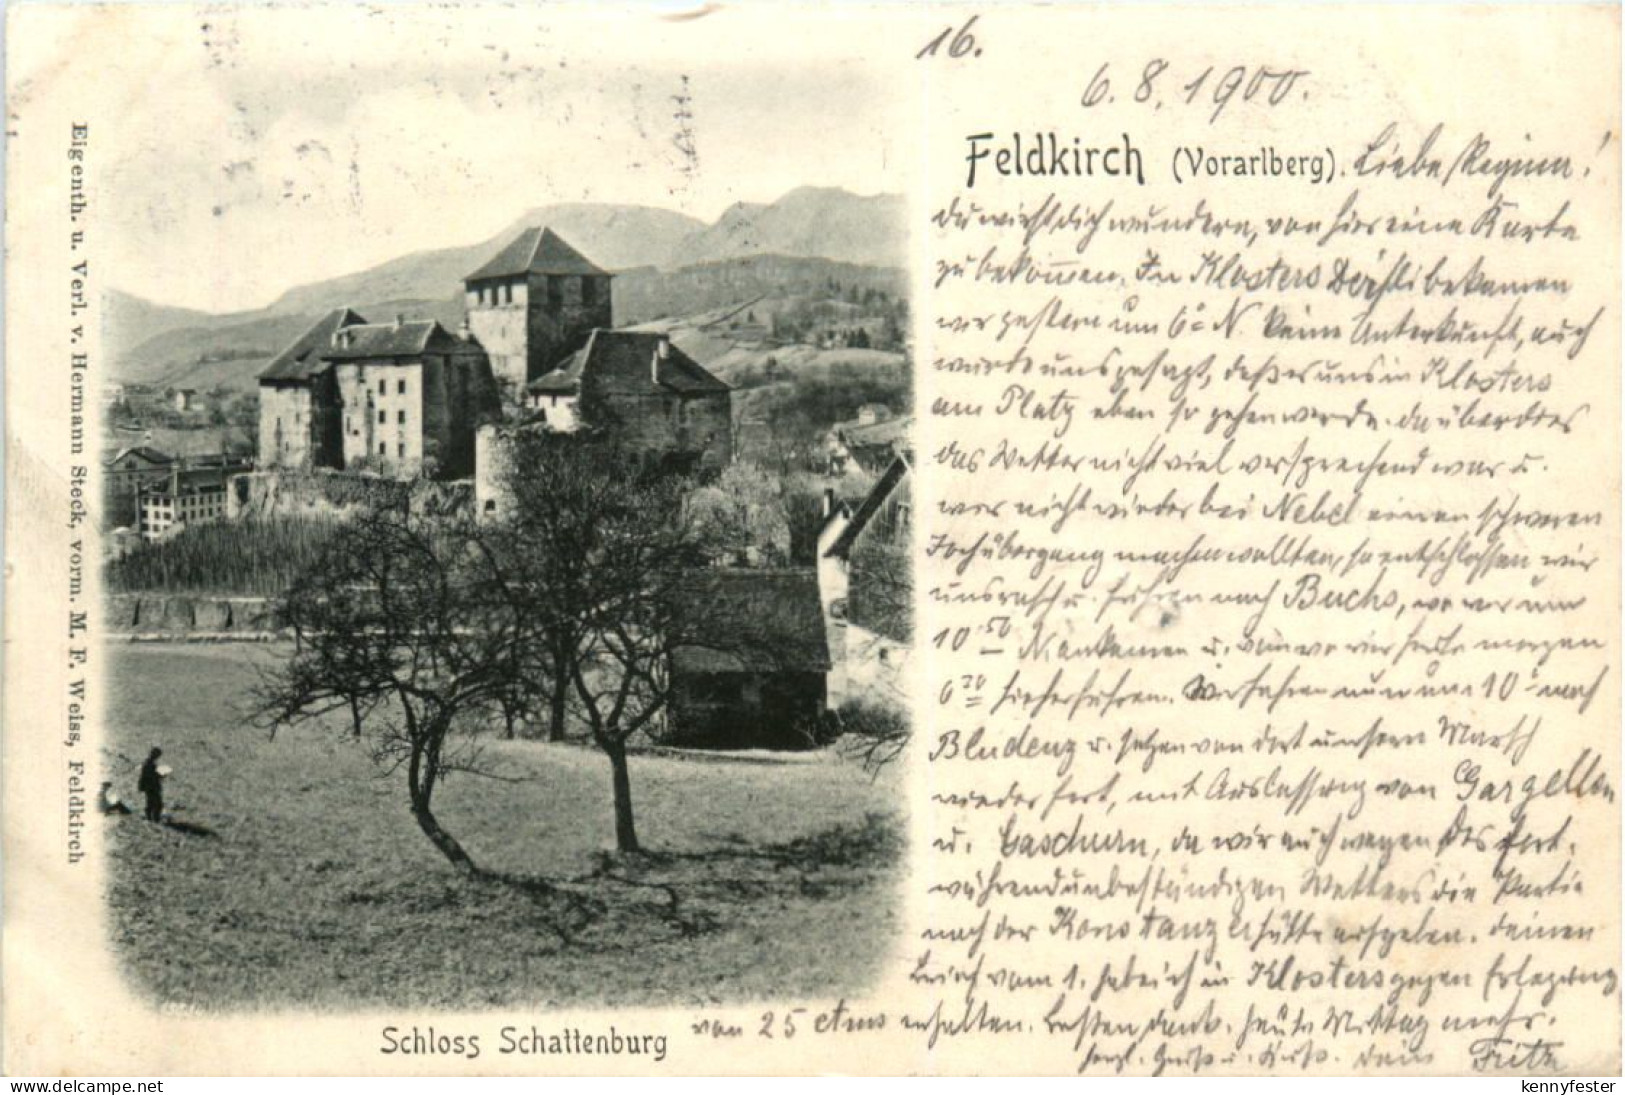 16.
6. 8. 1900.
Feldkirch (Vorarlberg). Liebe Regina!
Du wirst dich wundern, von hier eine Karte
zu bekom̅en. In Klosters Dörfli bekamen
wir gestern um 6° N. keine Unterkunft, auch
wurde uns gesagt, daß es uns in Klosters
am Platz eben so gehen werde. Da überdies
das Wetter nicht viel versprechend war u.
wir nicht wieder bei Nebel einen schweren
Jochübergang machen wollten, so entschlossen wir
uns rasch u. fuhren nach Buchs, wo wir um
10.50 N. ankamen u. von wo wir heute morgen
6 hieherfuhren. Wir fahren nun um 10 nach
Bludenz u. setzen von dort unsern Marsch
wieder fort, mit Auslassung von Gargellen
u. Gaschurn, da wir auch wegen des fort-
während unbeständigen Wetters die Partie
nach der Konstanzerhütte aufgeben. Deinen
Brief vom 1. habe ich in Klosters gegen Erlegung
von 25 ctms erhalten. Besten Dank. Heute Mittag mehr.
Herzl. Gruß u. Kuß. Dein Fritz
Schloss Schattenburg
Eigenth. u. Verl. v. Hermann Steck, vorm. M. F. Weiss, Feldkirch
https://www.delcampe.net
kennyfester